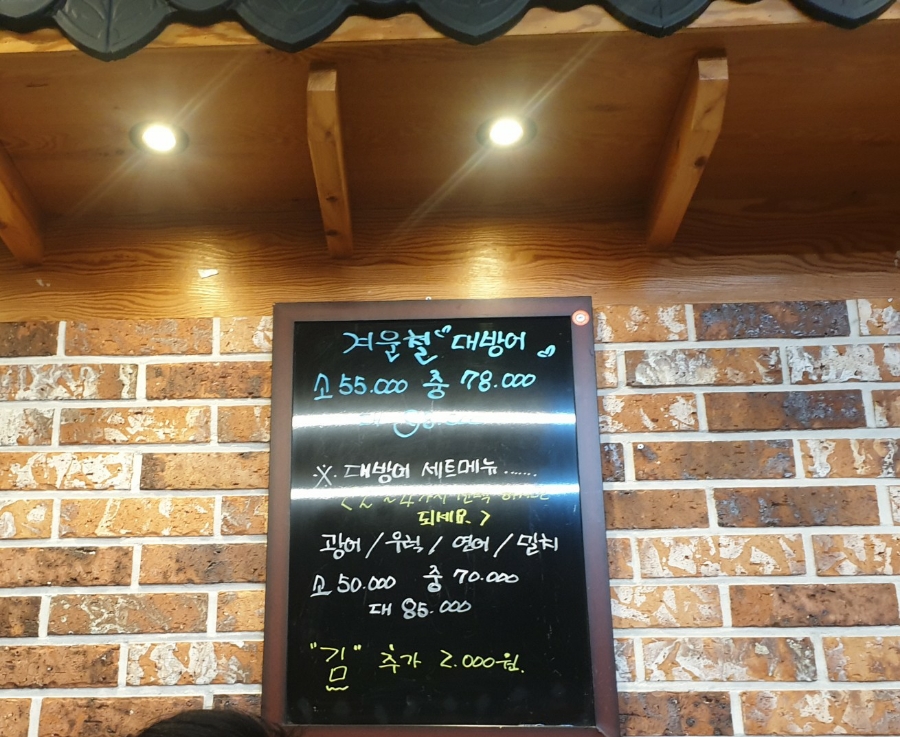 겨울철 대방어
소 55.000 중 78.000
※. 대방어 세트메뉴......
되세요.>
광어 / 우럭 / 연어 / 밀치
소 50.000 중 70.000
대 85.000
"김" 추가 2.000원.